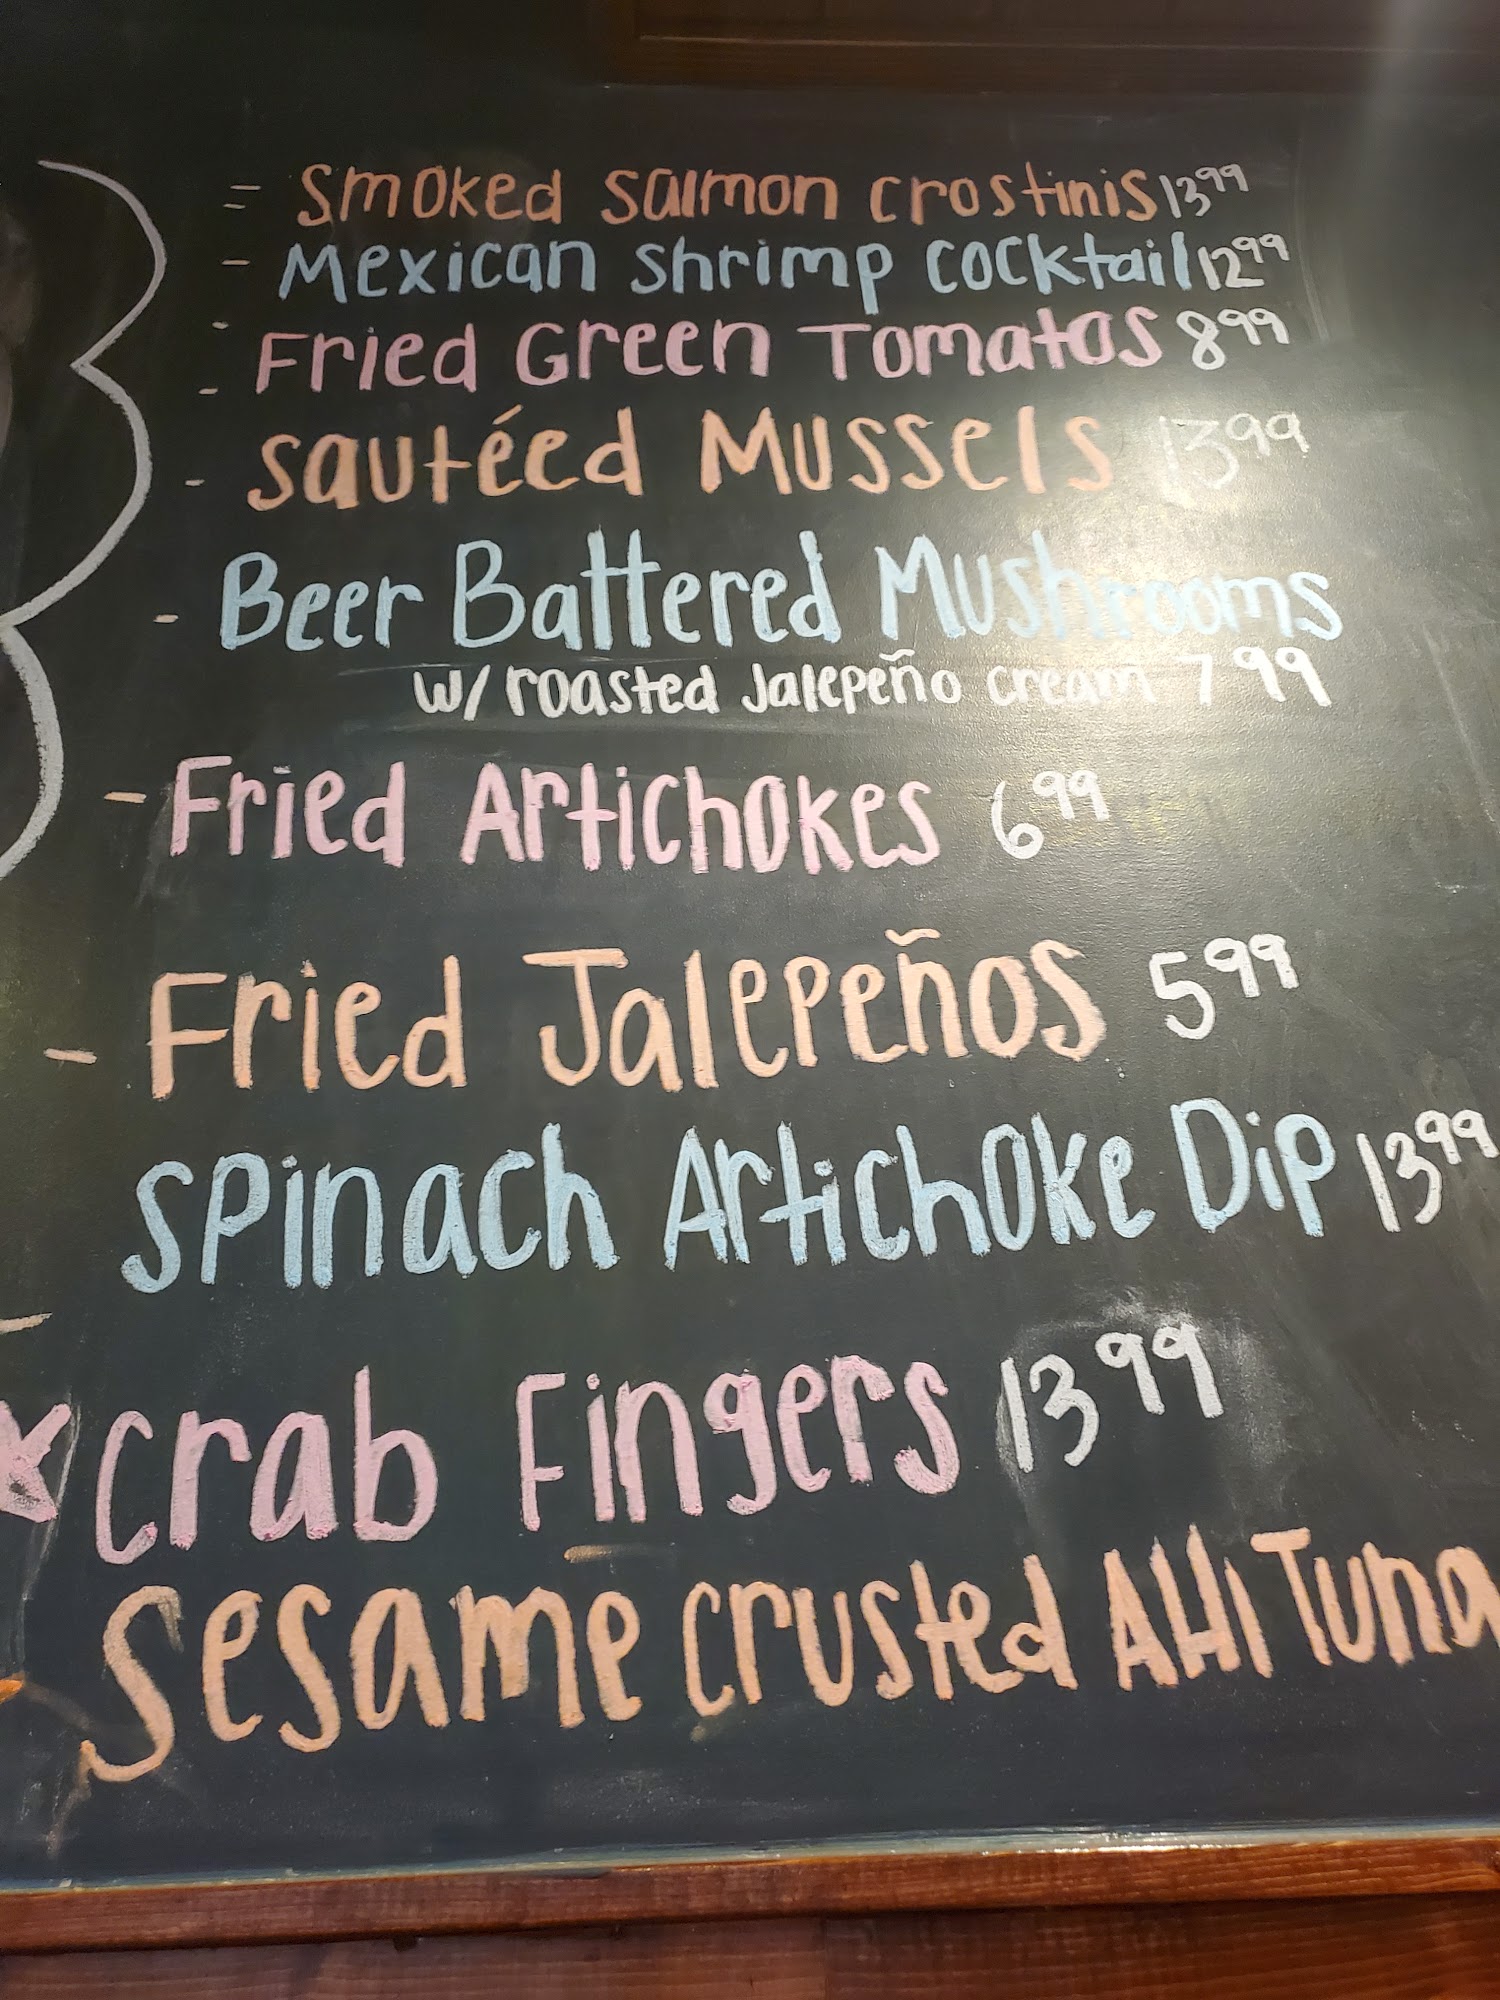 Smoked Salmon Crostinis 13⁹⁹
Mexican shrimp cocktail 12⁹⁹
Fried Green Tomatos 8⁹⁹
sautéed Mussels 13⁹⁹
Beer Battered Mushrooms
w/ roasted Jalepeño cream 7⁹⁹
Fried Artichokes 6⁹⁹
Fried Jalepeños 5⁹⁹
Spinach Artichoke Dip 13⁹⁹
Crab Fingers 13⁹⁹
Sesame Crusted AHI Tuna